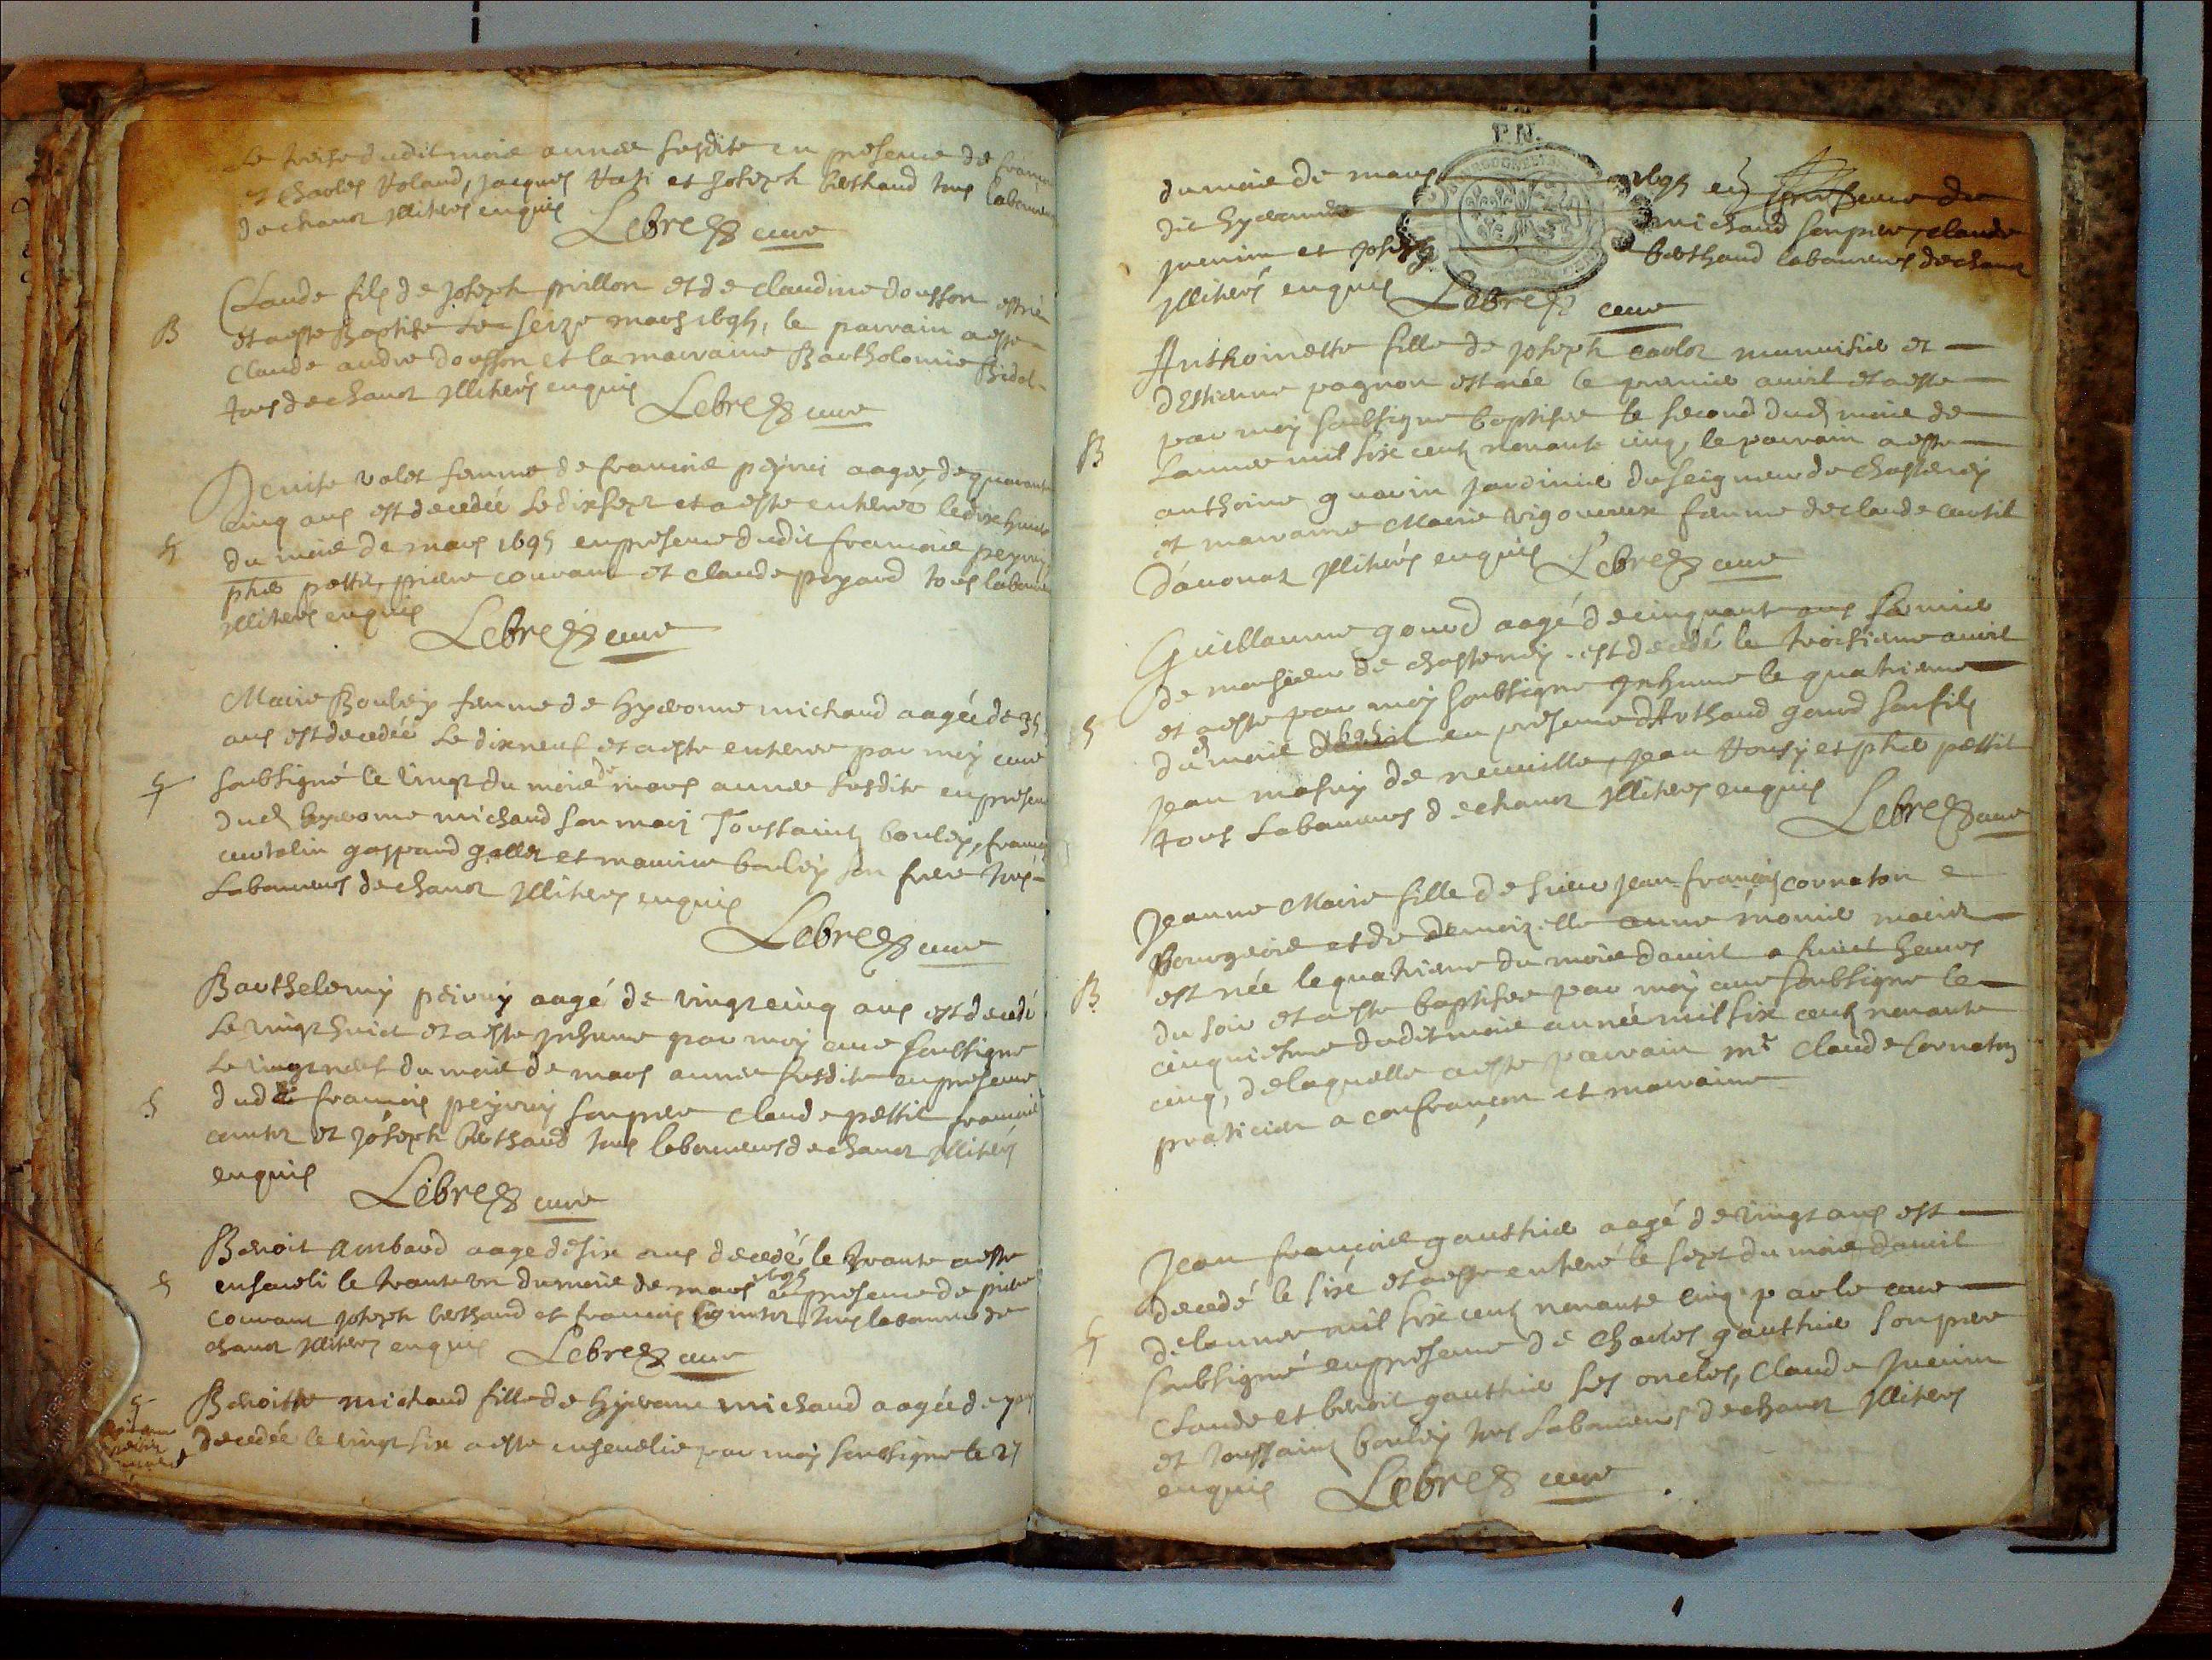 Le treise dudit mois année susdite en presence de françois
et Charles Roland, jacques Vati et Joseph berthaud tous laboureurs
de chanoz jlliterés enquis
Lebreq cure
Claude fils de joseph prillon et de claudine dousson est né
B
et a esté Baptisé le seize mars 1695, le parrain a esté
Claude andre dousson et la marraine Bartholomie Bidol
tous de chanoz jlliterés enquis
Lebreq cure
Denise volet femme de francois peyvri aagee de quarante
cinq ans est decedéé le dixsept et a esté enterée le dixhuit
S
du mois de mars 1695 en presence dudit francois peyvry
phe pettit, pierre couvant et claude poyard tous laboureurs
jlliterés enquis
Lebreq cure
Marie Bouley femme de hyeronne michaud aagéé de 35
ans est decedéé le dixneuf et a esté enterée par moy cure
S
soubsigné le vingt du mois de mars année susdite en presence
dud hyeronne michaud son mari Toussaint bouley, francois
curtelin gaspard gallet et maurice bouley son frere tous
Laboureurs de chanoz jlliterés enquis
Lebreq cure
Barthelemy peivry aagé de vingt cinq ans est decedé
Le vingt huict et a esté jnhume par moy cure soubsigne
Le vingt neuf du mois de mars année susdite en presence
S
dud francois peyvry son pere claude pettit francois
cointoz et joseph berthaud tous laboureurs de chanoz jlliterés
enquis
Lebreq cure
Benoit Ambard aage de six ans decedé le trante a esté
S
enseveli le trante un du mois de mars 1695 en presence de pierre
couvant joseph berthaud et francois cointoz tous laboureurs de
chanoz jlliterés enquis
Lebreq cure
S
Benoitte michaud fille de hyeronne michaud aagéé de
decedéé le vingt six a esté ensevelie par moy soubsigne le 27
du mois de mars 1695 en presence de
P.N.
dit hyeronne michaud son pere, claude
juenin et joseph berthaud laboureurs de chanoz
jlliterés enquis
Lebreq cure
Anthoinette fille de joseph carloz manuisié et
d'Estienne pagnon est née le premier avril et a esté
par moy soubsigne baptisee le second dud mois de
B
L'annee mil six cent nonante cinq, le parrain a esté
anthoine guarin jardinié du seigneur de chastenay
et marraine Marie vigoureux femme de claude curtil
d'avonaz jlliterés enquis
Lebreq cure
Guillaume gourd aagé de cinquant ans fermier
de monsieur de chastenay est decedé le troisieme avril
et a esté par moy soubsigne jnhume le quatrieme
S
du mois 1695 en presence d'Arthaud gourd son fils
jean masuy de neuville, jean Vousy et phe pettit
tous laboureurs de chanoz jlliterés enquis
Lebreq cure
Jeanne Marie fille de sieur jean françois cornaton
Bourgeois et de demoizelle anne monie
est née le quatrieme du mois d'avril a huict heures
B
du soir et a esté baptisee par moy cure soubsigne le
cinquiesme dudit mois année mil six cent nonante
cinq, de laquelle a esté parrain mr Claude Cornaton
praticien a confrançon et marraine
Jean françois gauthié aagé de vingt ans est
decedé le six et a esté enterré le sept du mois d'avril
S
de l'annee mil six cent nonante cinq par le cure
soubsigné en presence de Charles gauthié son pere
Claude et benoit gauthié ses oncles, Claude juenin
et toussaint bouley tous laboureurs de chanoz jlliterés
enquis
Lebreq cure